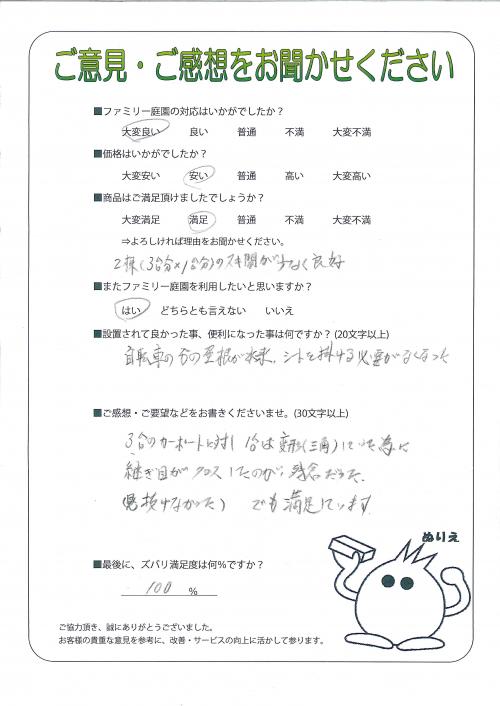 ご意見・ご感想をお聞かせください
■ファミリー庭園の対応はいかがでしたか？
大変良い 良い 普通 不満 大変不満
■価格はいかがでしたか？
大変安い 安い 普通 高い 大変高い
■商品はご満足頂けましたでしょうか？
大変満足 満足 普通 不満 大変不満
⇒よろしければ理由をお聞かせください。
2棟(3台分×1台分)のスキ間が少なく良好
■またファミリー庭園を利用したいと思いますか？
はい どちらとも言えない いいえ
■設置されて良かった事、便利になった事は何ですか？(20文字以上)
自転車の分の屋根が出来、シートを掛ける必要がなくなった
■ご感想・ご要望などをお書きくださいませ。(30文字以上)
3台のカーポートに対し1台は変形(三角)していた為に
継ぎ目がクロスしたのが、残念だった
(見抜けなかった) でも満足しています
ぬりえ
■最後に、ズバリ満足度は何％ですか？
100 ％
ご協力頂き、誠にありがとうございました。
お客様の貴重な意見を参考に、改善・サービスの向上に活かして参ります。